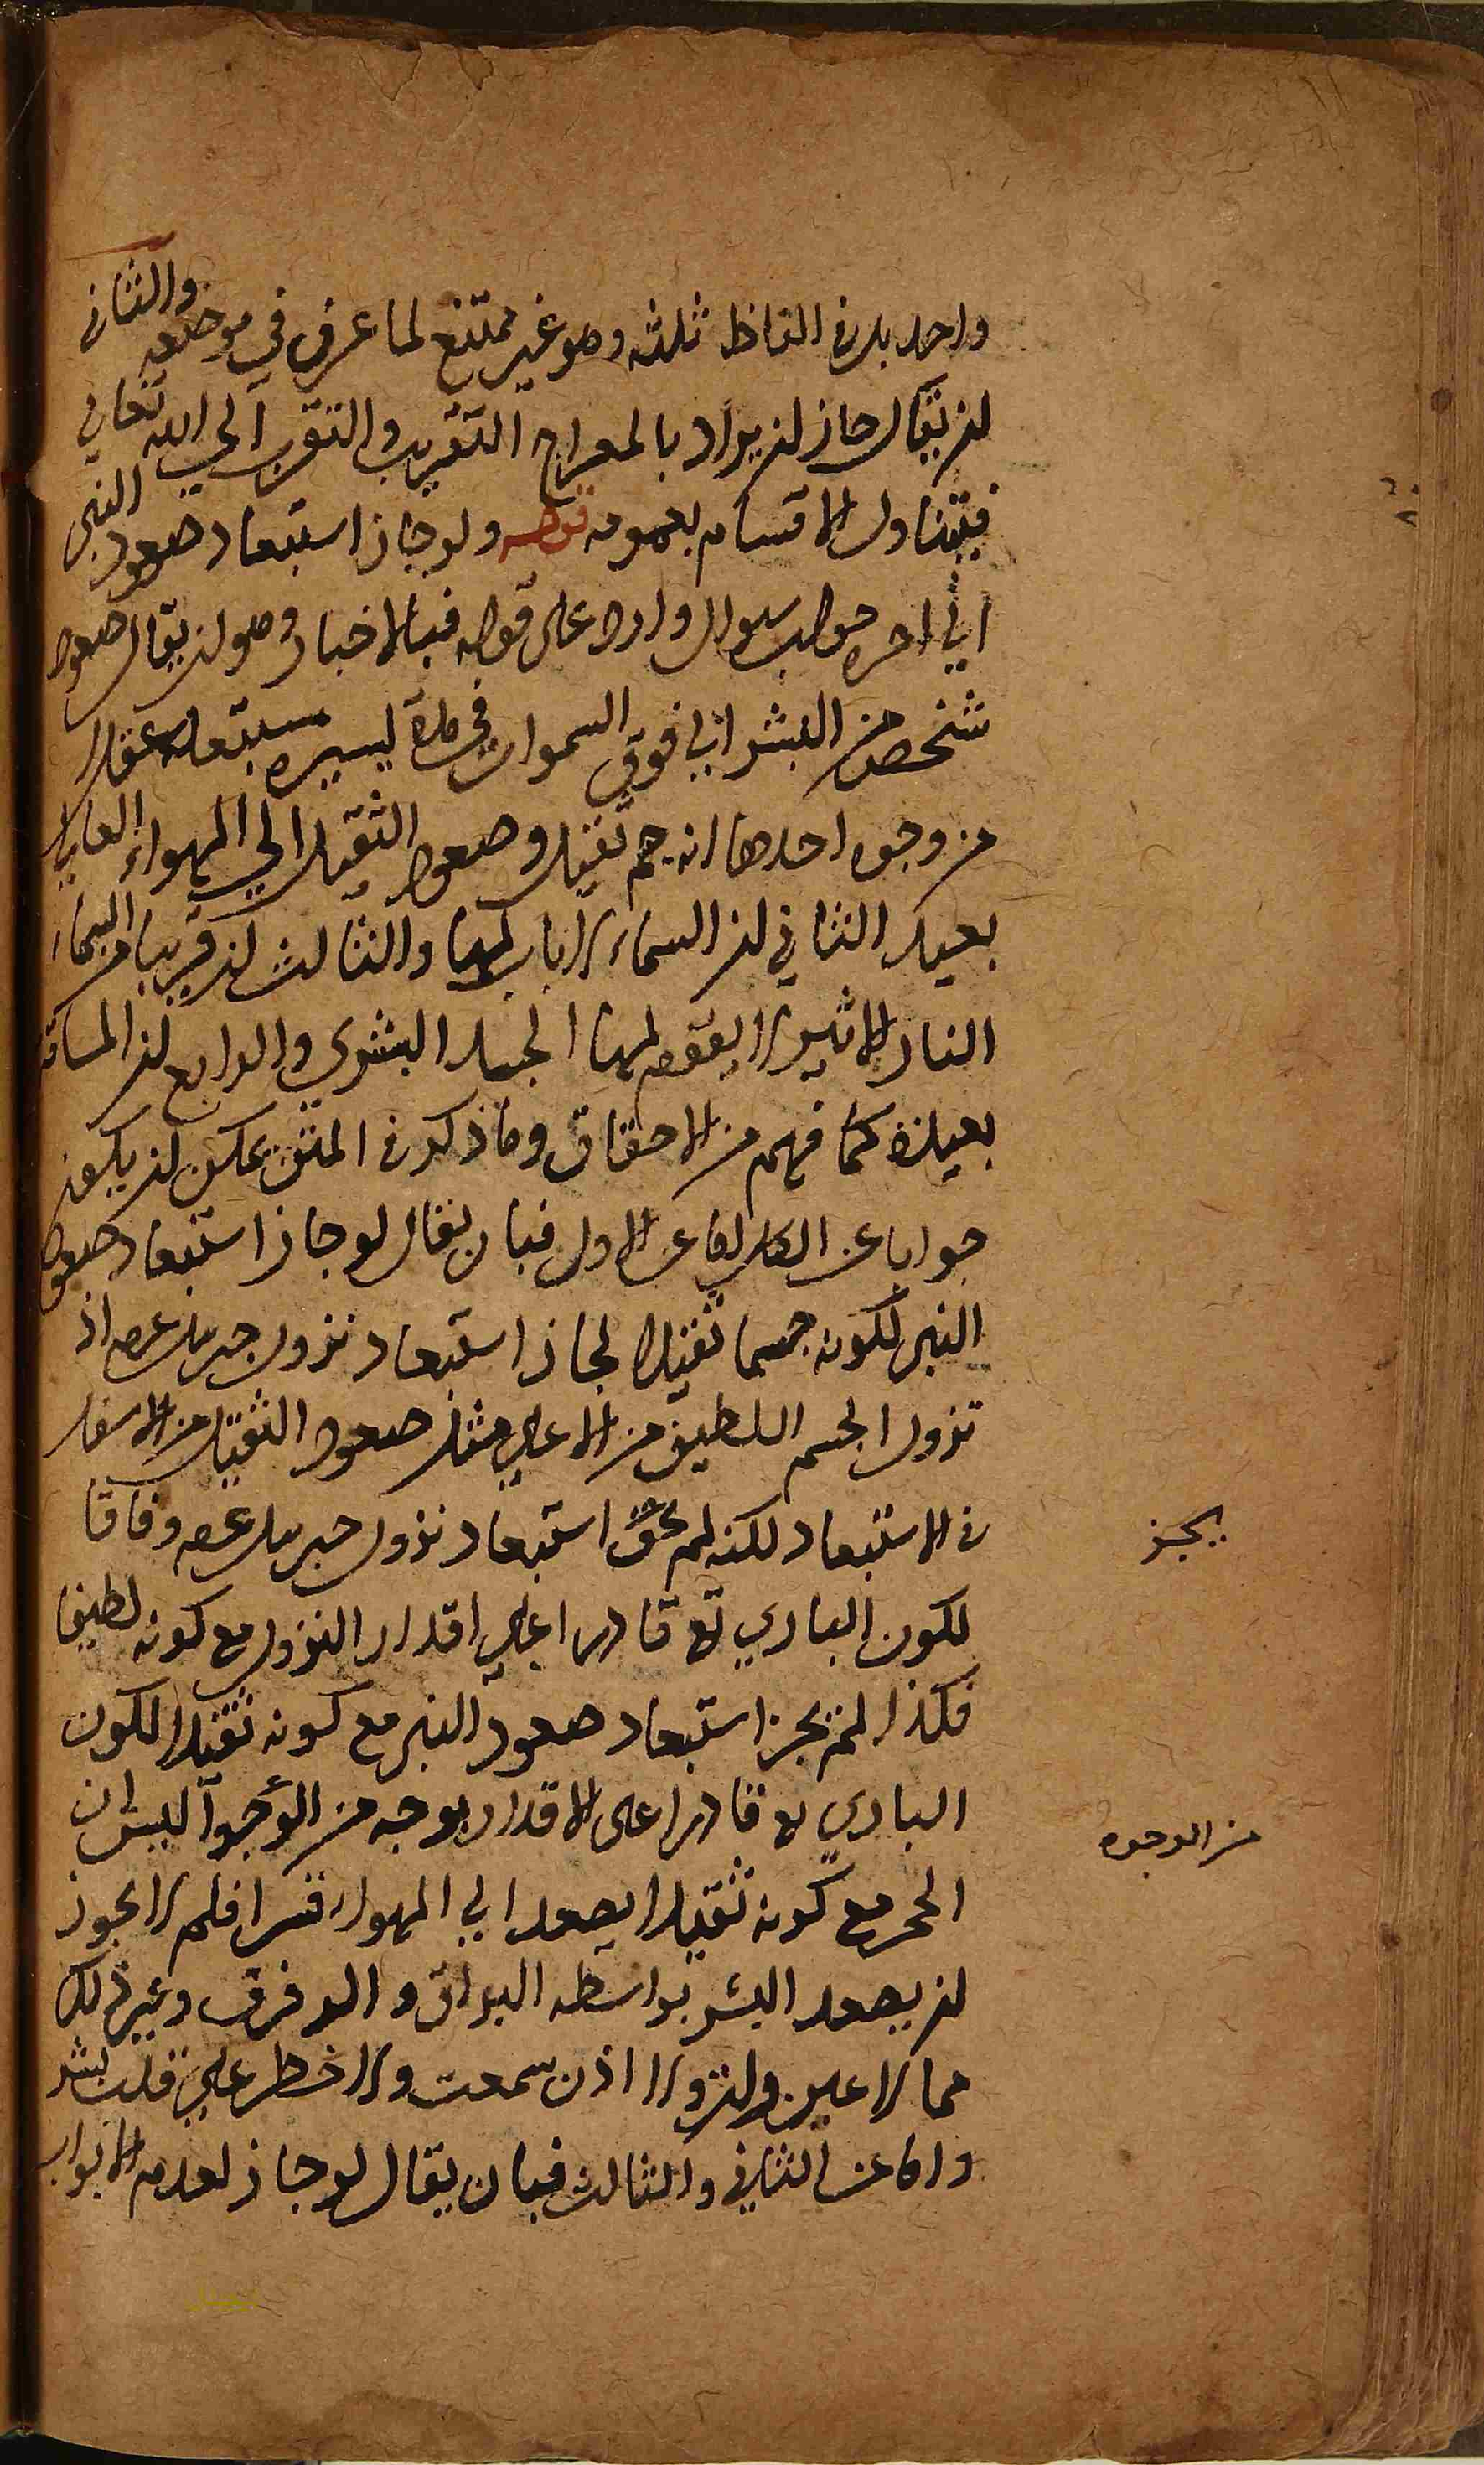 واحد بل في الفاظ ثلثه وهو غير ممتنع لما عرف في موضعه والثاني
ان يقال جاز ان يراد بالمعراج التقريب والتقرب الي الله تعالي
فيتناول الاقسام بعمومه قوله ولو جاز استبعاد صعود النبي
الي اخره جواب سوال وارد على قوله فبالاخبار وهو ان يقال صعود
شخص من البشر الي فوق السموات في مدة يسيره مستبعد عقلا
من وجوه احدها انه جسم ثقيل وصعود الثقيل الي الهواء العالي
بعيد الثاني ان السماء لا باب لها والثالث ان قريبا من السماء
النار الاثير لا يقوم لها الجسد البشري والرابع ان المسافة
بعيدة كما فهم من الاحقاق وما ذكر في المتن يمكن ان يكون
جوابا عن الكل اما عن الاول فبان يقال لو جاز استبعاد صعود
النبي لكونه جسما ثقيلا لجاز استبعاد نزول جبريل عم اذ
نزول الجسم اللطيف من الاعلي مثل صعود الثقيل من الاسفل
في الاستبعاد لكنه لم استبعاد نزول جبريل عم وفاقا
يجز
لكون الباري تع قادرا علي اقدار النزول مع كونه لطيفا
فكذا لم يجز استبعاد صعود النبي مع كونه ثقيلا لكون
الباري تع قادرا على الاقدار بوجه من الوجوه اليس ان
من الوجوه
الحجر مع كونه ثقيلا يصعد الي الهواء قسرا فلم لا يجوز
ان يصعد البشر بواسطه البراق والرفرف وغير ذلك
مما لا عين رات ولا اذن سمعت ولا خطر علي قلب بشر
واما عن الثاني والثالث فبان يقال لو جاز لعدم الابواب